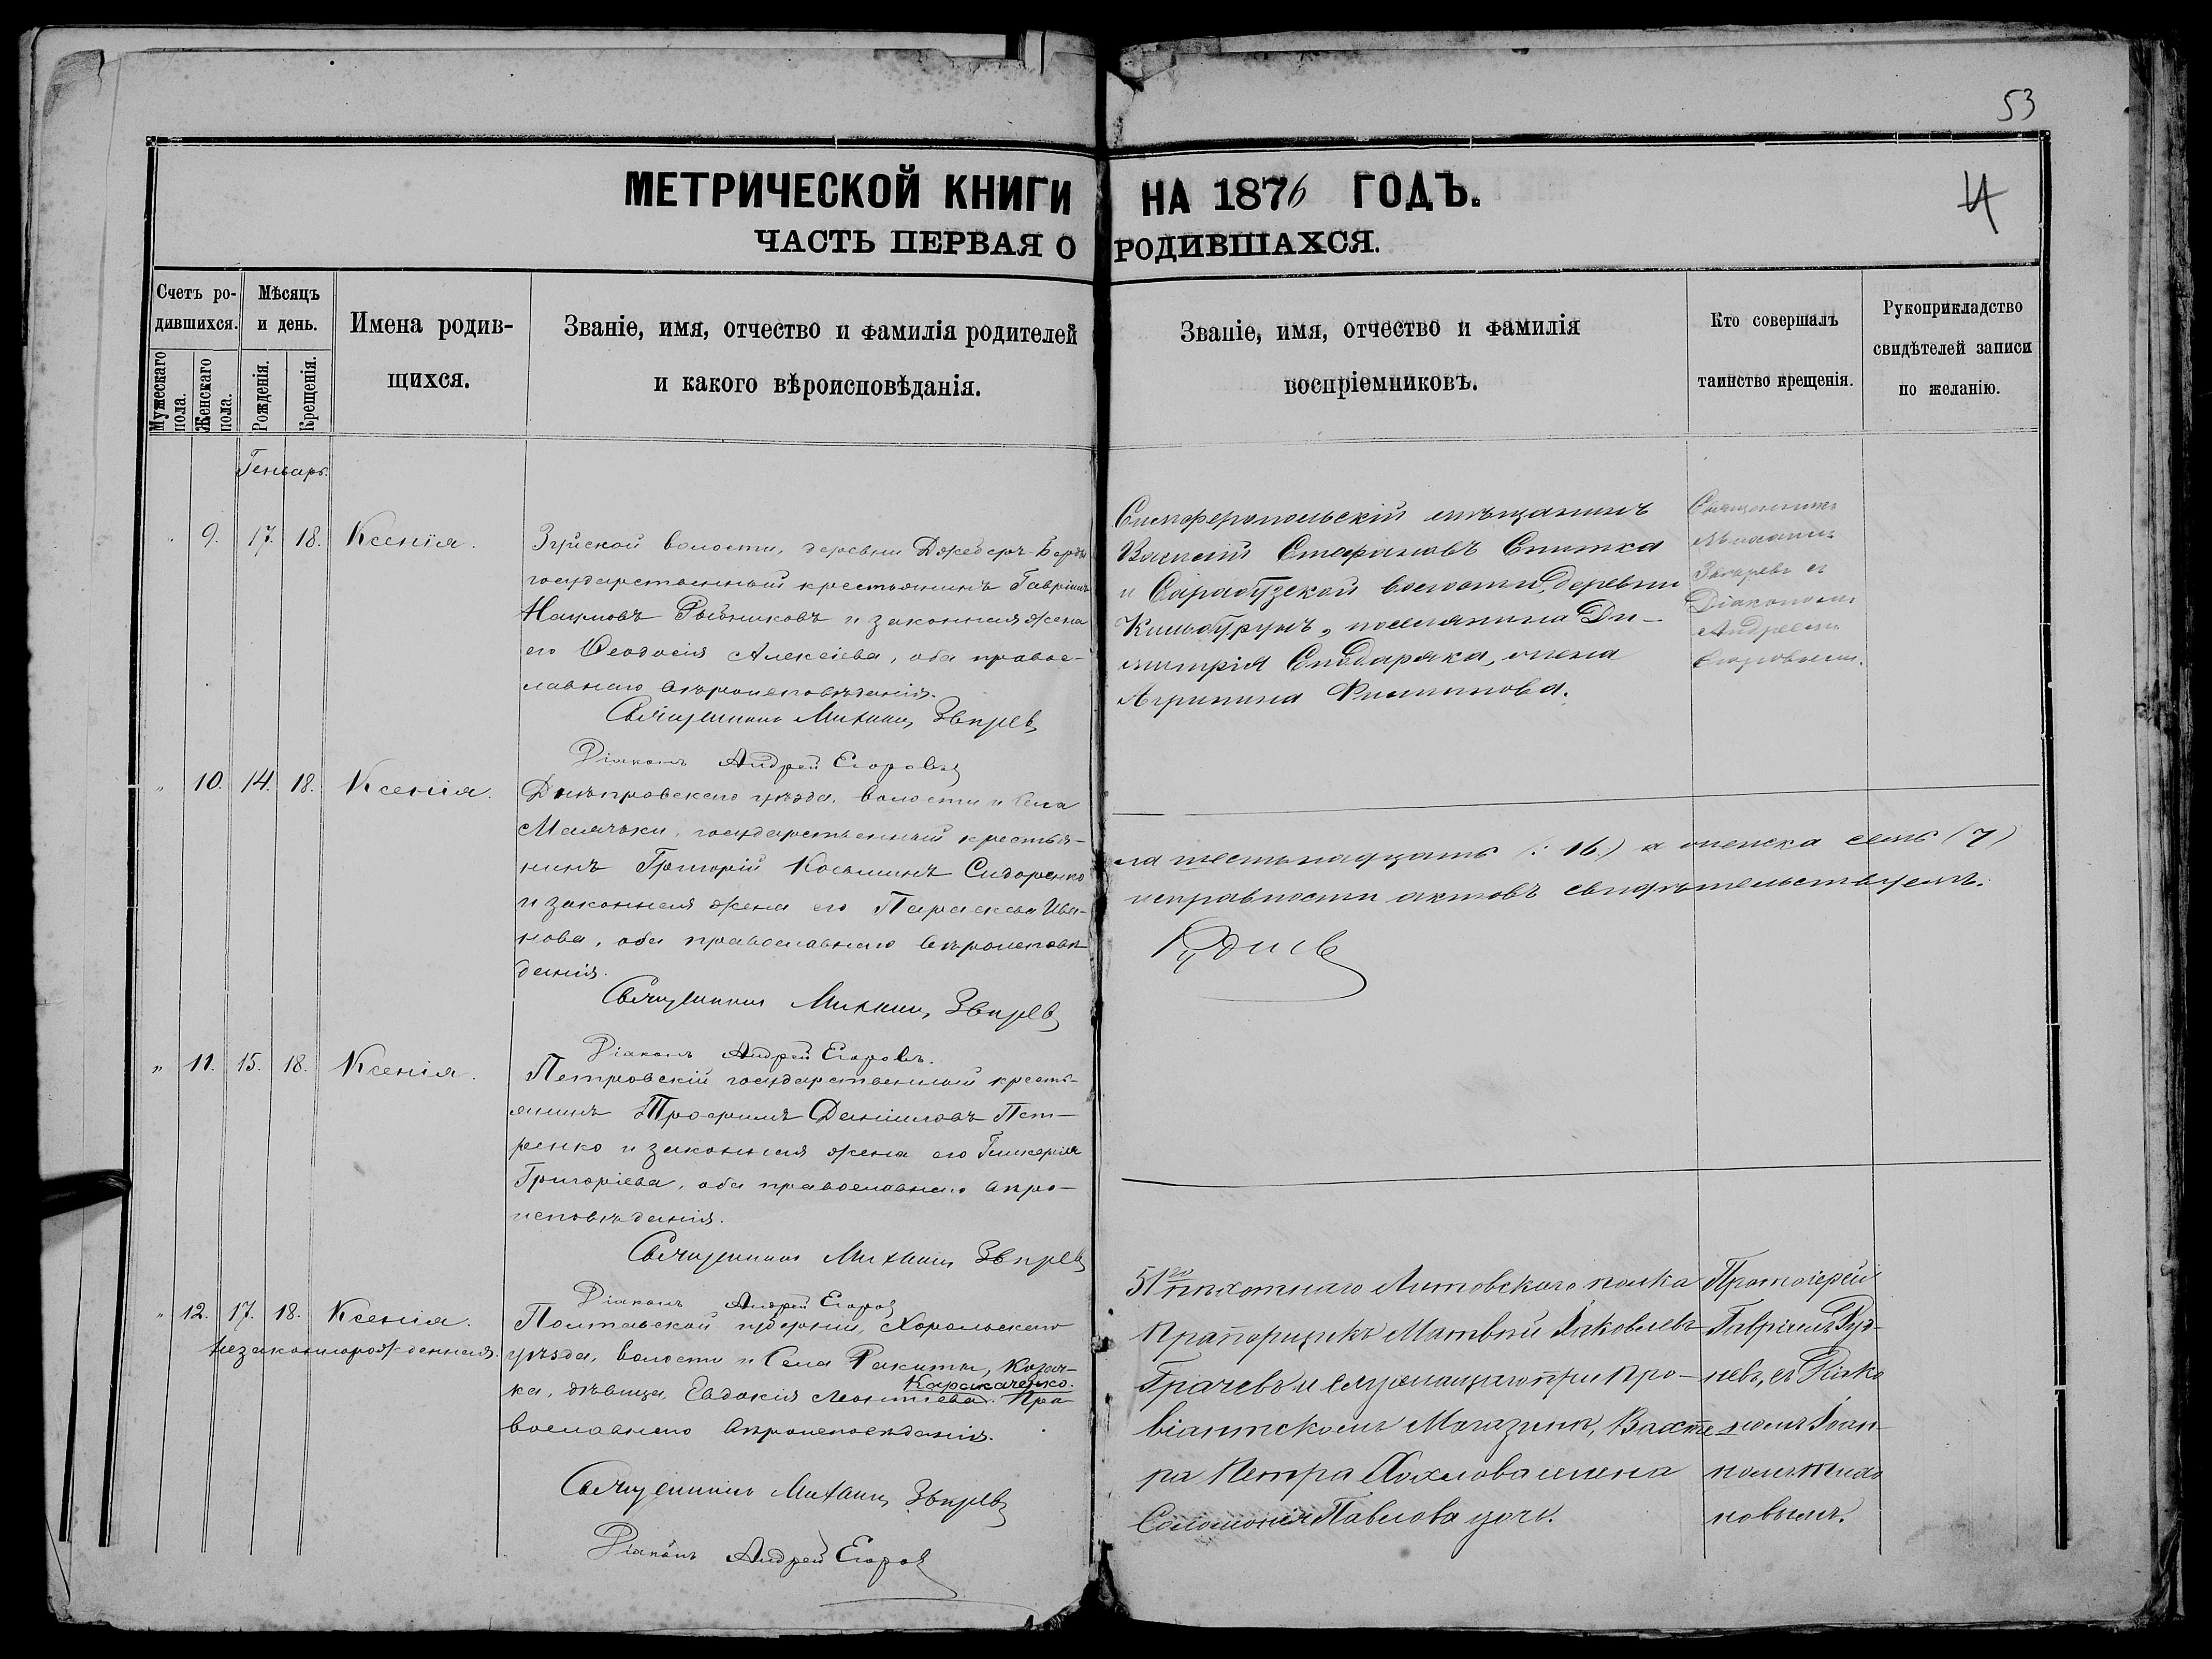 53
4
МЕТРИЧЕСКОЙ КНИГИ НА 1876 ГОДЪ.
ЧАСТЬ ПЕРВАЯ О РОДИВШАХСЯ.
Счетъ ро-
дившихся.
Мужескаго пола.
Женскаго пола.
Мѣсяцъ
и день.
Рожденія.
Крещенія.
Имена родив-
щихся.
Званіе, имя, отчество и фамилія родителей
и какого вѣроисповѣданія.
Званіе, имя, отчество и фамилія
воспріемниковъ.
Кто совершалъ
таинство крещенія.
Рукоприкладство
свидѣтелей записи
по желанію.
Геньварь.
9. 17. 18. Ксенія.
Зуйской волости, деревни Джеберъ-Берды
государственный крестьянинъ Гавріилъ
Наумовъ Рыбниковъ и законная жена
его Ѳеодосія Алексіева, оба правос-
лавнаго вѣроисповѣданія.
Священникъ Михаилъ Звѣревъ
Діаконъ Андрей Егоровъ
Симферопольскій мѣщанинъ
Василій Стефановъ Спитка
и Сарабузской волости, деревни
Кильбурунъ, поселянина Ди-
митрія жена
Агрипина Филиппова.
Священникъ
Михаилъ
Звѣревъ съ
Діакономъ
Андреемъ
Егоровымъ.
„ 10. 14. 18. Ксенія.
Днѣпровскаго уѣзда, волости и села
Маячки, государственный крестья-
нинъ Григорій Косьминъ Сидоренко
и законная жена его Параскева Ива-
нова, оба православнаго вѣроисповѣ-
данія.
Священникъ Михаилъ Звѣревъ
Діаконъ Андрей Егоровъ.
ла шестьнадцать (: 16.) а женска семь (7)
исправности актовъ свидѣтельствуемъ.
„ 11. 15. 18. Ксенія.
Петровскій государственный кресть-
янинъ Трофимъ Даніиловъ Пет-
ренко и законная жена его Гликерія
Григоріева, оба православнаго вѣро-
исповѣданія.
Священникъ Михаилъ Звѣревъ
Діаконъ Андрей Егоровъ
„ 12. 17. 18. Ксенія.
незаконнорожденная.
Полтавской губерніи, Хорольскаго
уѣзда, волости и села Ракиты, козач-
ка, дѣвица, Евдокія Леонтіева Каракаченко. Пра-
вославнаго вѣроисповѣданія.
Священникъ Михаилъ Звѣревъ
Діаконъ Андрей Егоровъ
51го пѣхотнаго Литовскаго полка
Прапорщикъ Матвѣй Яковлевъ
Грачевъ и служащаго при Про-
віантскомъ Магазинѣ, Вахте-
ра Петра жена
Соломонія Павлова дочь.
Протоіерей
Гавріилъ Руд-
невъ, съ Діако-
номъ Іоан-
номъ
новымъ.